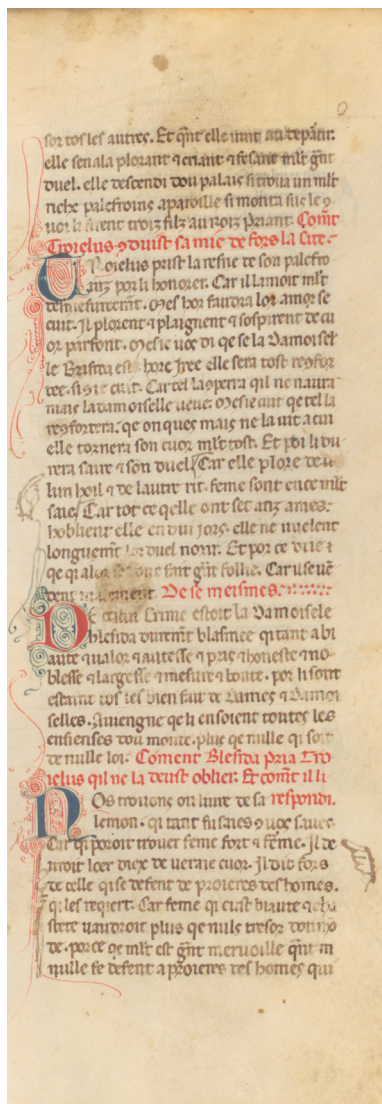 sor tos les autres. Et qñt elle vint au depãtir.
elle sen ala plorant ⁊ criant ⁊ fesant mlt gñt
duel. elle descendi dou palais si trova un mlt
riche palefroinz aparoille si monta sus le
troiz filz au roiz Priant. Comt
Troielus ⁊duist sa mie de fors la cite.
Troielus prist la resne de son palefro
anz por li honorer. Car il lamoit mlt
desmesurement. Mes hor faudra lor amor se
cuit. Jl plorent ⁊ plaignent ⁊ sospirent de cu
or parfont. Mes ie voz di qe se la Damoisel
le Brisida est hore Jree elle sera tost reꝯfor
tee. si
mais la damoiselle veue. Mes ie cuit qe tel la
reꝯfortera. qe onques mais ne la vit a cui
elle tornera son cuor mlt tost. Et poi li du
rera saire ⁊ son duel. Car elle plore de l
lun hoil ⁊ de lautre rit. feme sont en ce mlt
saies. Car tot ce qelle ont set anz ames.
hoblient elle en dui jorz. elle ne vuelent
longuemt lor duel norir. Et por ce
qe qi font gñt follie. Car
De se meismes.
De crime estoit la Damoisele
blesida durement blasmee qi tant a bi
aute ⁊ valor ⁊ autesse ⁊ pris ⁊ honeste ⁊ no
blesse ⁊ largesse ⁊ mesure ⁊ bonte. por li sont
estaint tos les bien fait de Dames ⁊ Damoi
selles. Avengne qe li ensoient toutes les
ensienses dou monde. plus qe nulle qi soit
de nulle loi. Coment Blesida pria Tro
ielus qil ne la deust oblier. Et comt il li
respondi.
Nos trovons ou livre de sa
lemon. qi tant fu saies ⁊
Car qi poroit trover feme fort ⁊ ferme. Jl de
vroit loer diex de veraie cuor. Jl dit fors
de celle qi se defent de proieres des homes.
qi les reqiert. Car feme qi eust biaute ⁊ cha
stete vaudroit plus qe nuls tresor dou mo
de. por ce qe mlt est gñt mervoille qñt
nulle se defent a proieres des homes qui